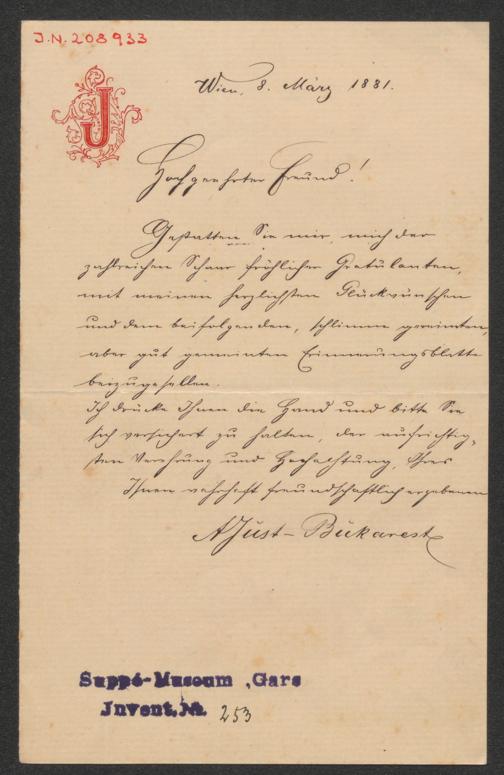 J.N. 208933
J
Wien, 8. März 1881.
Hochgeehrter Freund!
Gestatten Sie mir, mich der
zahlreichen Schaar fröhlicher Gratulanten,
mit meinen herzlichsten Glückwünschen
und dem beifolgenden, schlimm gereimten,
aber gut gemeinten Erinnerungsblatte
beizugesellen.
Ich drücke Ihnen die Hand und bitte Sie
sich versichert zu halten, der aufrichtig-
sten Verehrung und Hochachtung, Ihres
Ihnen wahrhaft freundschaftlich ergebenen
AJust-Bukarest
Suppé-Museum, Gars
Invent. Nr. 253